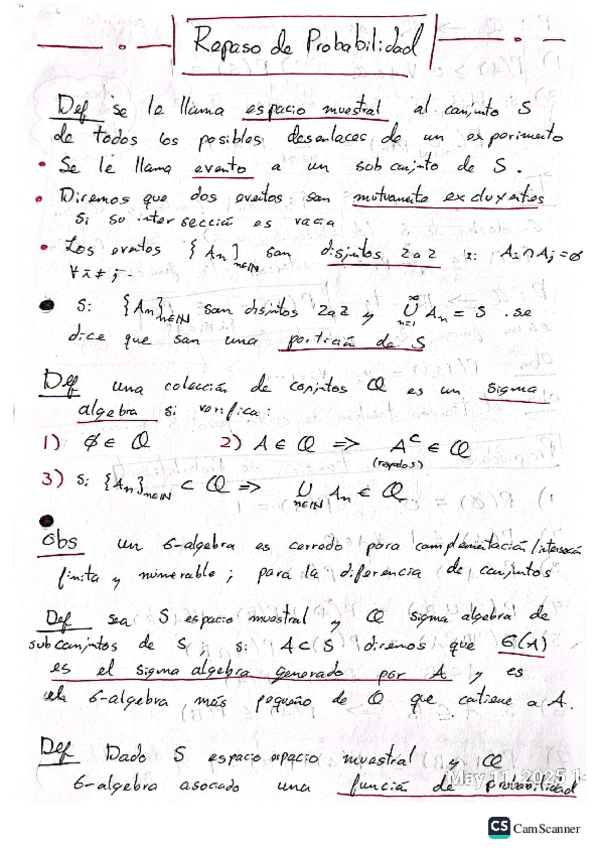 Repaso de Probabilidad
Def se le llama espacio muestral al conjunto S
de todos los posibles desenlaces de un experimento
• Se le llama evento a un subconjunto de S.
• Diremos que dos eventos son mutuamente excluyentes
si su intersección es vacía
• Los eventos {An}n∈ℕ son disjuntos 2a2 si: Ai∩Aj=ø
∀ i≠j.
• Si {An}n∈ℕ son disjuntos 2a2 y ∞⋃n=1 An = S . se
dice que son una partición de S
Def una colección de conjuntos Q es un sigma
algebra si verifica:
1) ø ∈ Q 2) A ∈ Q => A^c ∈ Q
3) Si {An}n∈ℕ ⊂ Q => ⋃n∈ℕ An ∈ Q
Obs un σ-algebra es cerrado para complementación/intersección
finita y numerable ; para la diferencia de conjuntos
Def sea S espacio muestral y Q sigma algebra de
subconjuntos de S ; si A⊂(S) diremos que σ(A)
es el sigma algebra generado por A y es
el σ-algebra más pequeño de Q que contiene a A.
Def Dado S espacio muestral y Q
σ-algebra asocado una función de probabilidad
May 11, 2025
CS CamScanner